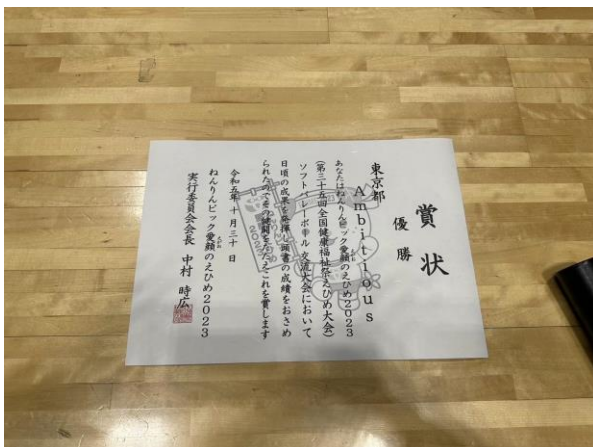 賞状
優勝
東京都
Ambitious
あなたはねんりんピック愛顔のえひめ2023
(第三十五回全国健康福祉祭えひめ大会)
ソフトバレーボール交流大会において
日頃の成果を発揮し頭書の成績をおさめ
られたのでその健闘をたたえこれを賞します
令和五年十月三十日
ねんりんピック愛顔のえひめ2023
実行委員会会長 中村 時広